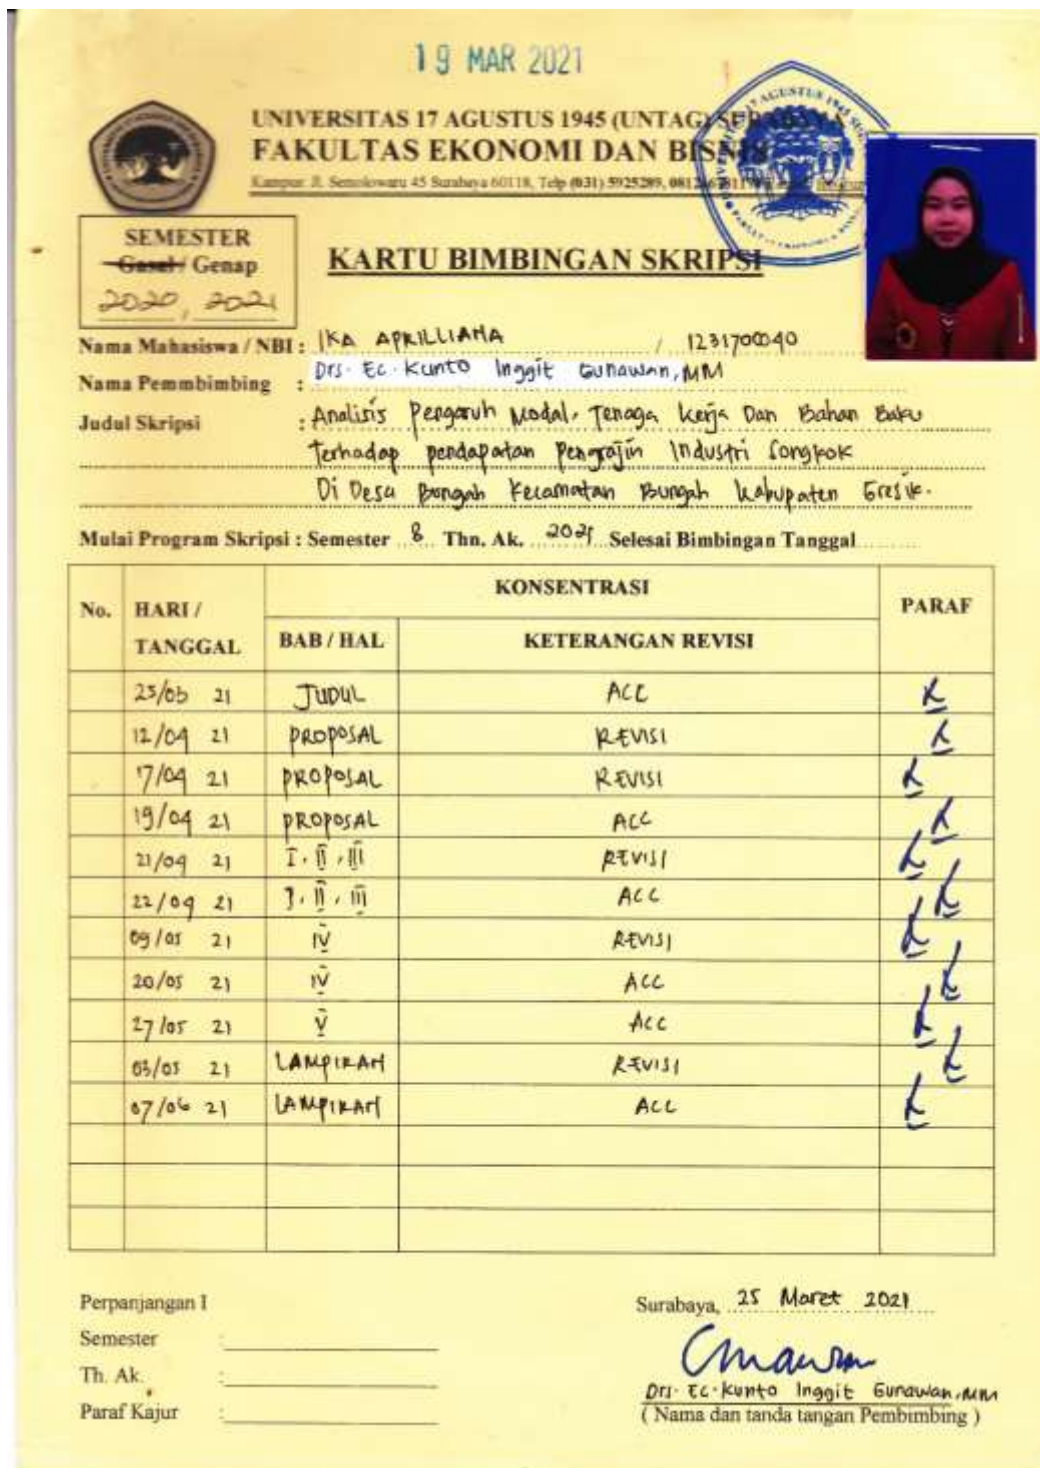 19 MAR 2021
UNIVERSITAS 17 AGUSTUS 1945 (UNTAG) SURABAYA
FAKULTAS EKONOMI DAN BISNIS
Kampus: Jl. Semolowaru 45 Surabaya 60118, Telp (031) 5925289,
SEMESTER
Gasal / Genap
2020, 2021
KARTU BIMBINGAN SKRIPSI
Nama Mahasiswa / NBI : IKA APRILLIANA / 1231700040
Nama Pemmbimbing : Drs. Ec. Kunto Inggit Gunawan, MM
Judul Skripsi : Analisis Pengaruh Modal, Tenaga Kerja Dan Bahan Baku
Terhadap pendapatan Pengrajin Industri Songkok
Di Desa Bungah Kecamatan Bungah Kabupaten Gresik.
Mulai Program Skripsi : Semester 8 Thn. Ak. 2021 Selesai Bimbingan Tanggal
No. HARI / TANGGAL KONSENTRASI PARAF
BAB / HAL KETERANGAN REVISI
25/03 21 JUDUL ACC
12/04 21 PROPOSAL REVISI
17/04 21 PROPOSAL REVISI
19/04 21 PROPOSAL ACC
21/04 21 I, II, III REVISI
22/04 21 I, II, III ACC
09/05 21 IV REVISI
20/05 21 IV ACC
27/05 21 V ACC
03/05 21 LAMPIRAN REVISI
07/06 21 LAMPIRAN ACC
Perpanjangan I
Semester :
Th. Ak. :
Paraf Kajur :
Surabaya, 25 Maret 2021
Drs. Ec. Kunto Inggit Gunawan, MM
( Nama dan tanda tangan Pembimbing )